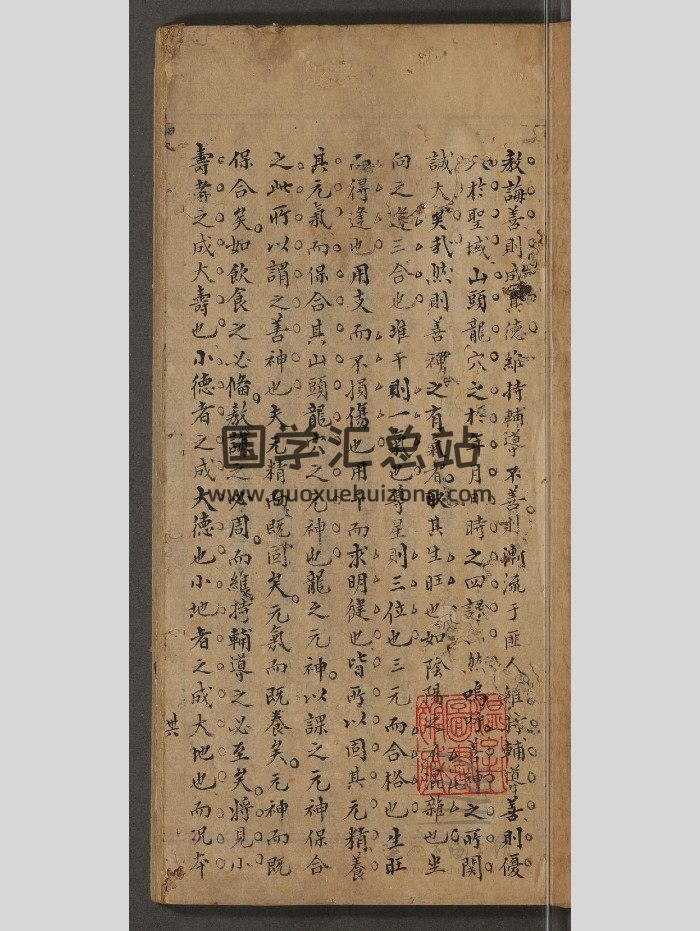 教誨善則成其德維持輔導不善則漸流于匪人維持輔導善則優
入於聖域山頭龍穴之於年月日時之四課亦然嗚呼善神之所関
誠大矣哉然則善神之有氣者欲其生旺也如陰陽不混雜也坐
向之逢三合也堆干則一氣也尊星則三位也三元而合格也生旺
而得逢也用支而不損傷也用干而求明健也皆所以固其元精養
其元氣而保合其山頭龍穴之元神也龍之元神以課之元神保合
之此所以謂之善神也夫元精而既固矣元氣而既養矣元神而既
保合矣如飲食之必偹教誨之必周而維持輔導之必至矣將見小
壽者之成大壽也小德者之成大德也小地者之成大地也而况本
共
国学汇总站
www.guoxuehuizong.com